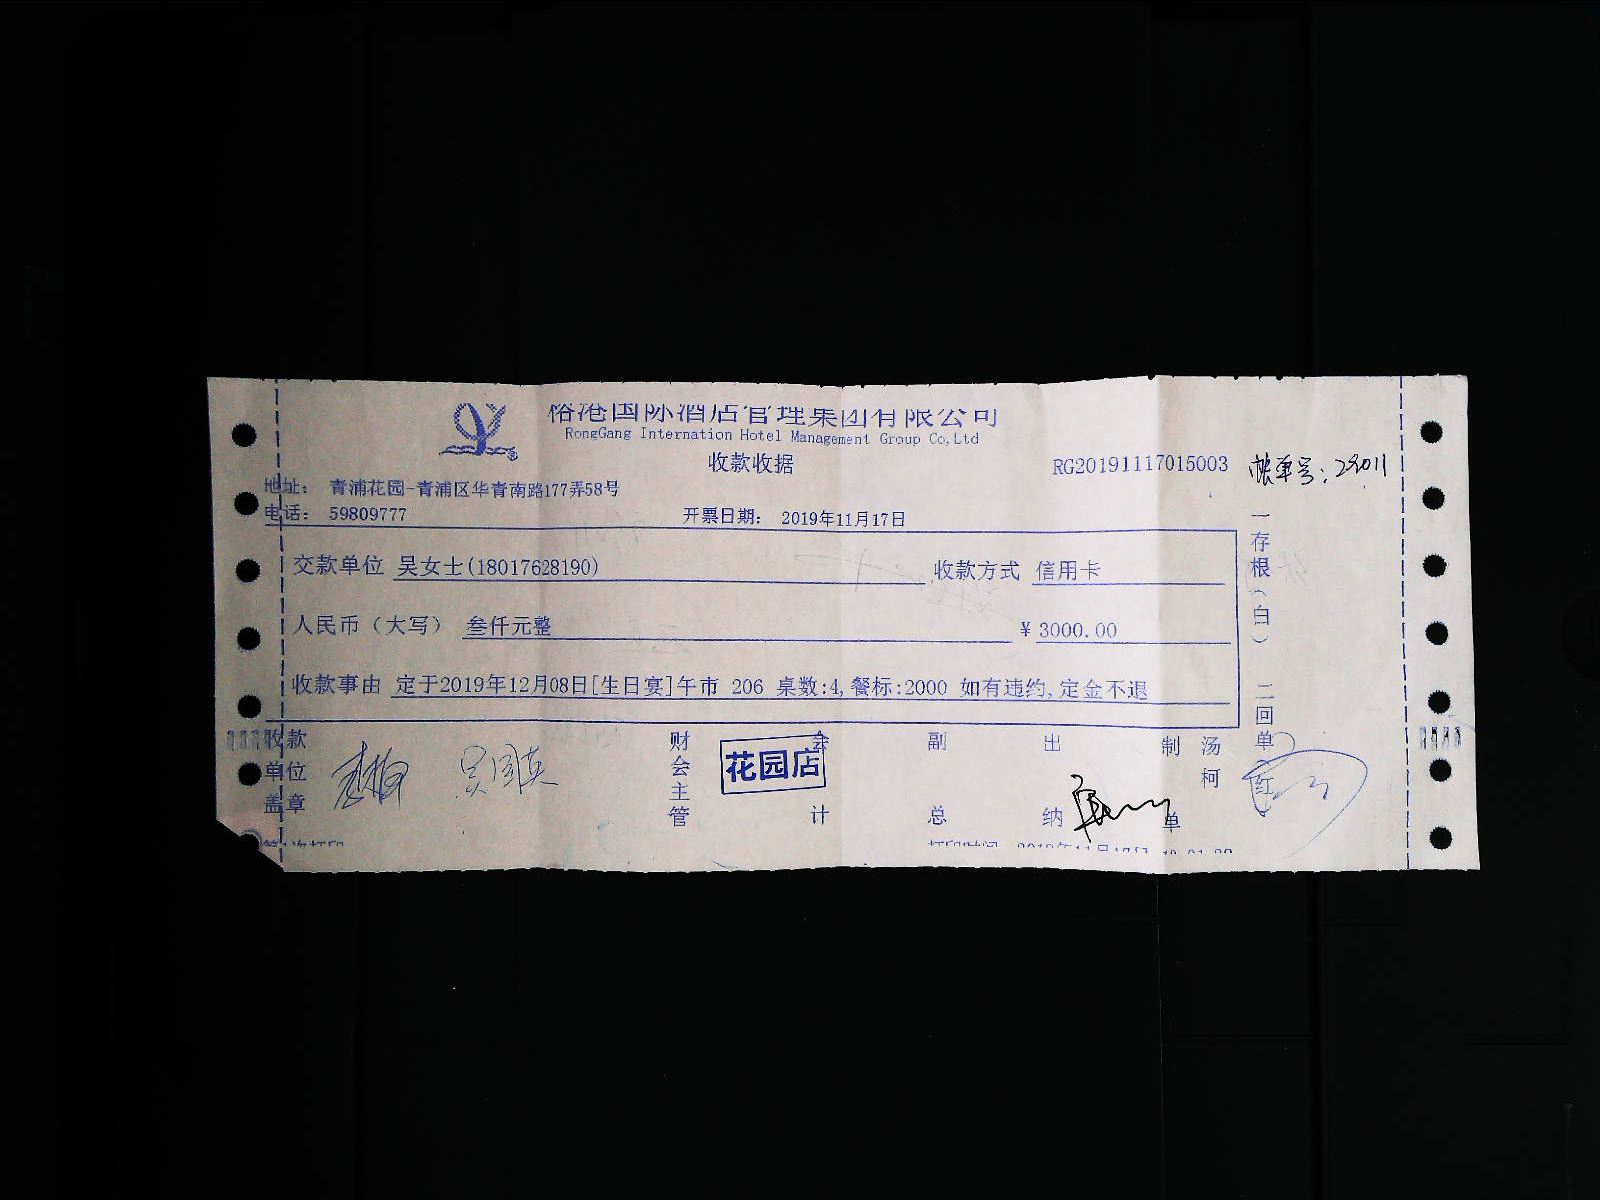 裕港国际酒店管理集团有限公司
RongGang Internation Hotel Management Group Co,Ltd
收款收据
RG20191117015003
帐单号：28011
地址： 青浦花园-青浦区华青南路177弄58号
电话： 59809777
开票日期： 2019年11月17日
交款单位 吴女士(18017628190) 收款方式 信用卡
人民币（大写） 叁仟元整 ￥ 3000.00
收款事由 定于2019年12月08日[生日宴]午市 206 桌数:4,餐标:2000 如有违约,定金不退
一存根（白） 二回单（红）
收款单位盖章
财会主管
花园店
会计
副总
出纳
制单
汤柯
第1次打印
打印时间 2019年11月17日